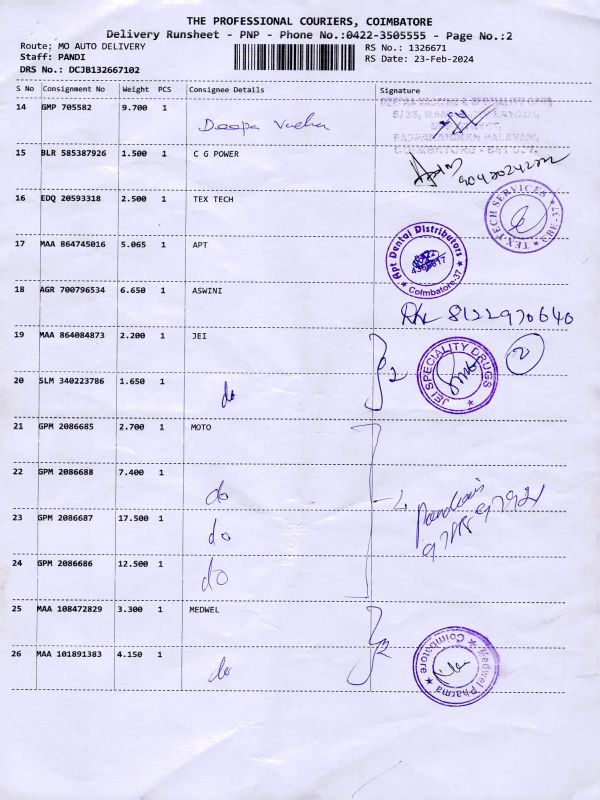 THE PROFESSIONAL COURIERS, COIMBATORE
Delivery Runsheet - PNP - Phone No.:0422-3505555 - Page No.:2
Route; MO AUTO DELIVERY
RS No.: 1326671
Staff: PANDI
RS Date: 23-Feb-2024
DRS No.: DCJB132667102
S No Consignment No Weight PCS Consignee Details Signature
14 GMP 705582 9.700 1
Deepa
15 BLR 585387926 1.500 1 C G POWER
16 EDQ 20593318 2.500 1 TEX TECH
TEX-TECH SERVICES
17 MAA 864745016 5.065 1 APT
Apt Dental Distributors
Coimbatore-37
18 AGR 700796534 6.650 1 ASWINI
8122970640
19 MAA 864084873 2.200 1 JEI
2
JEI SPECIALITY DRUGS
2
20 SLM 340223786 1.650 1 do
21 GPM 2086685 2.700 1 MOTO
22 GPM 2086688 7.400 1 do
23 GPM 2086687 17.500 1 do
24 GPM 2086686 12.500 1 do
25 MAA 108472829 3.300 1 MEDWEL
2
Medwel Pharma
Coimbatore
26 MAA 101891383 4.150 1 do